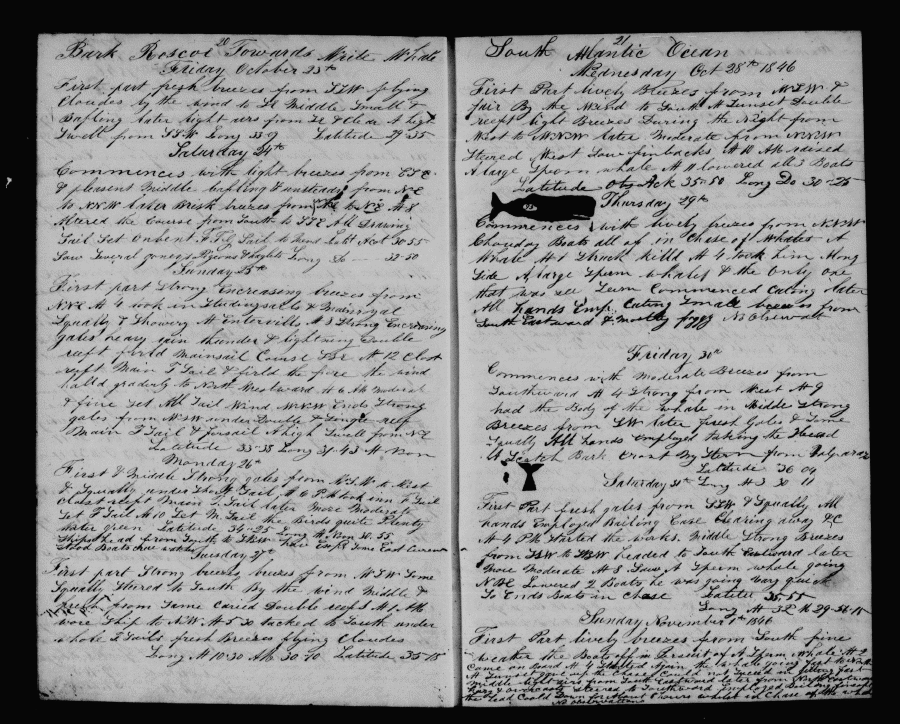 20
Bark Roscoe Towards Write Whale
Friday October 23th
First part fresh breezes from SSW flying
Cloudes by the wind to SE Middle Small &
Bafling later light airs from SE & Clear A light
Swell from SSW Long 33-9 Latitude 29-35
Saturday 24th
Commences with light breezes from ESE
& plesent Middle bafling & unsteady from NE
to NNW later Brisk breezes from the to NE At 8
Altered the Course from South to SSE All Drawing
Sail Set Latt 30-55
Saw Several Long 32-50
Sunday 25th
First part Strong Encreasing breezes from
NNE At 4 took in Studingsails & Mainroyal
Squally & Showery At Entervills At 8 Strong Encreasing
gales heavy rain thunder & lightning Double
reeft furld Mainsail Course At 12 Close
reeft Main T Sail & firld the fore the wind
halld graderly to North Westward At 6 Ab Moderat
& fine Set All Sail Wind WNW Ends Strong
gales from WSW under Double & Single reef
Main T Sail & foresail A high Swell from NE
Latitude 33-38 Long 31-43 At Noon
Monday 26th
First & Middle Strong gales from WSW to West
& Squally under Short Sail At 6 P.M. took in F Sail
Closet reeft Main T Sail later More Moderate
Set F Sail At 10 Set M Sail the Birds quite Plenty
Water green Latitude 34-25 Long At Noon 30-55
Ship head from South to
Tuesday 27th
First part Strong breezes breezes from WSW Some
Squally Steered to South By the wind Middle &
fresh from Same Caried Double reefs At 1 AM
wore Ship to NW At 5 30 tacked to South under
whole T Sails fresh Breezes flying Cloudes
Long At 10-30 AM 30-10 Latitude 35-15
21
South Atlantic Ocean
Wednesday Oct 28th 1846
First Part lively Breezes from WSW &
fair By the Wind to South At Sunset Double
reeft light Breezes During the Night from
West to WNW later Moderate from NNW
Steered West Saw finbacks At 10 AM raised
A large Sperm whale At 11 lowered all 3 Boats
Latitude Obs 35-50 Long Do 30-25
Thursday 29th
Commences with lively breezes from NNW
Clouday Boats all of in Chase of Whales A
Whale At 1 Struck killd At 4 took him Along
Side A large Sperm whale & the Only One
that was see Seen Commenced Cuting later
All hands Emp. Cuting Small breezes from
South Eastward & Mostly foggy No Observatt
Friday 30th
Commences with Moderate Breezes from
Southward At 4 Strong from West At 9
had the Body of the whale in Middle Strong
Breezes from SW later fresh Gales & Some
Squally All hands employed taking the Head
A Scotch Bark Crost By Stern from Valparaz
Latitude 36 04
Saturday 31th Long At 3 30 11
First Part fresh gales from SSW & Squally All
hands Employed Bailing Case Clearing away &C
At 4 PM Started the works. Middle Strong Breezes
from SSW to headed to South Eastward later
More Moderate At 8 Saw A Sperm whale going
NNE Lowered 2 Boats he was going very quick
So Ends Boats in Chase Latitu 35-55
Long At 3 P M 29-56-15
Sunday November 1th 1846
First Part lively breezes from South fine
weather the Boats off in Persuit of A Sperm whale At 2
Came on Board At 4 Started Again the whale going fast to
At Sunset gave up the Chase Could not Suceed in getting fast
Middle light airs from South Eastward later from North Eastward
hazy & overcast Steered to Southward Employed Boiling
No observations